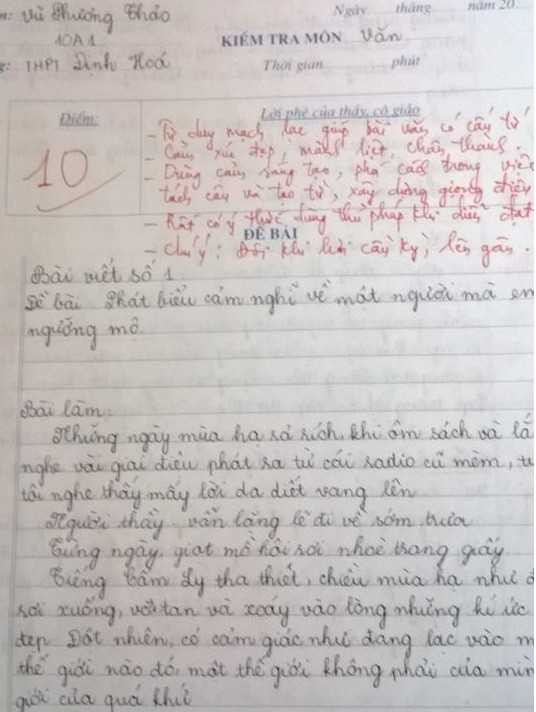 n: Vũ Phương Thảo Ngày tháng năm 20
10A1 KIỂM TRA MÔN Văn
g: THPT Định Hoá Thời gian phút
Điểm: Lời phê của thầy, cô giáo
10
- Tư duy mạch lạc giúp bài văn có cấu tứ
- Cảm xúc đẹp, mãnh liệt, chân thành.
- Dùng câu sáng tạo, phá cách trong việc
tách câu và tạo từ, xây dựng giọng điệu
- Rất có ý thức dùng thủ pháp khi diễn đạt
ĐỀ BÀI
- Chú ý: Đôi khi hơi cầu kỳ, lên gân.
Bài viết số 1.
Đề bài Phát biểu cảm nghĩ về một người mà em
ngưỡng mộ.
Bài làm:
Những ngày mùa hạ rả rích, khi ôm sách và lắ
nghe vài giai điệu phát ra từ cái radio cũ mèm, t
tôi nghe thấy mấy lời da diết vang lên
Người thầy vẫn lặng lẽ đi về sớm trưa
Từng ngày, giọt mồ hôi rơi nhoè trang giấy
Tiếng Cẩm Ly tha thiết, chiều mùa hạ như
rơi xuống, vỡ tan và xoáy vào lòng những kí ức
đẹp. Đột nhiên, có cảm giác như đang lạc vào m
thế giới nào đó, một thế giới không phải của mìn
giới của quá khứ